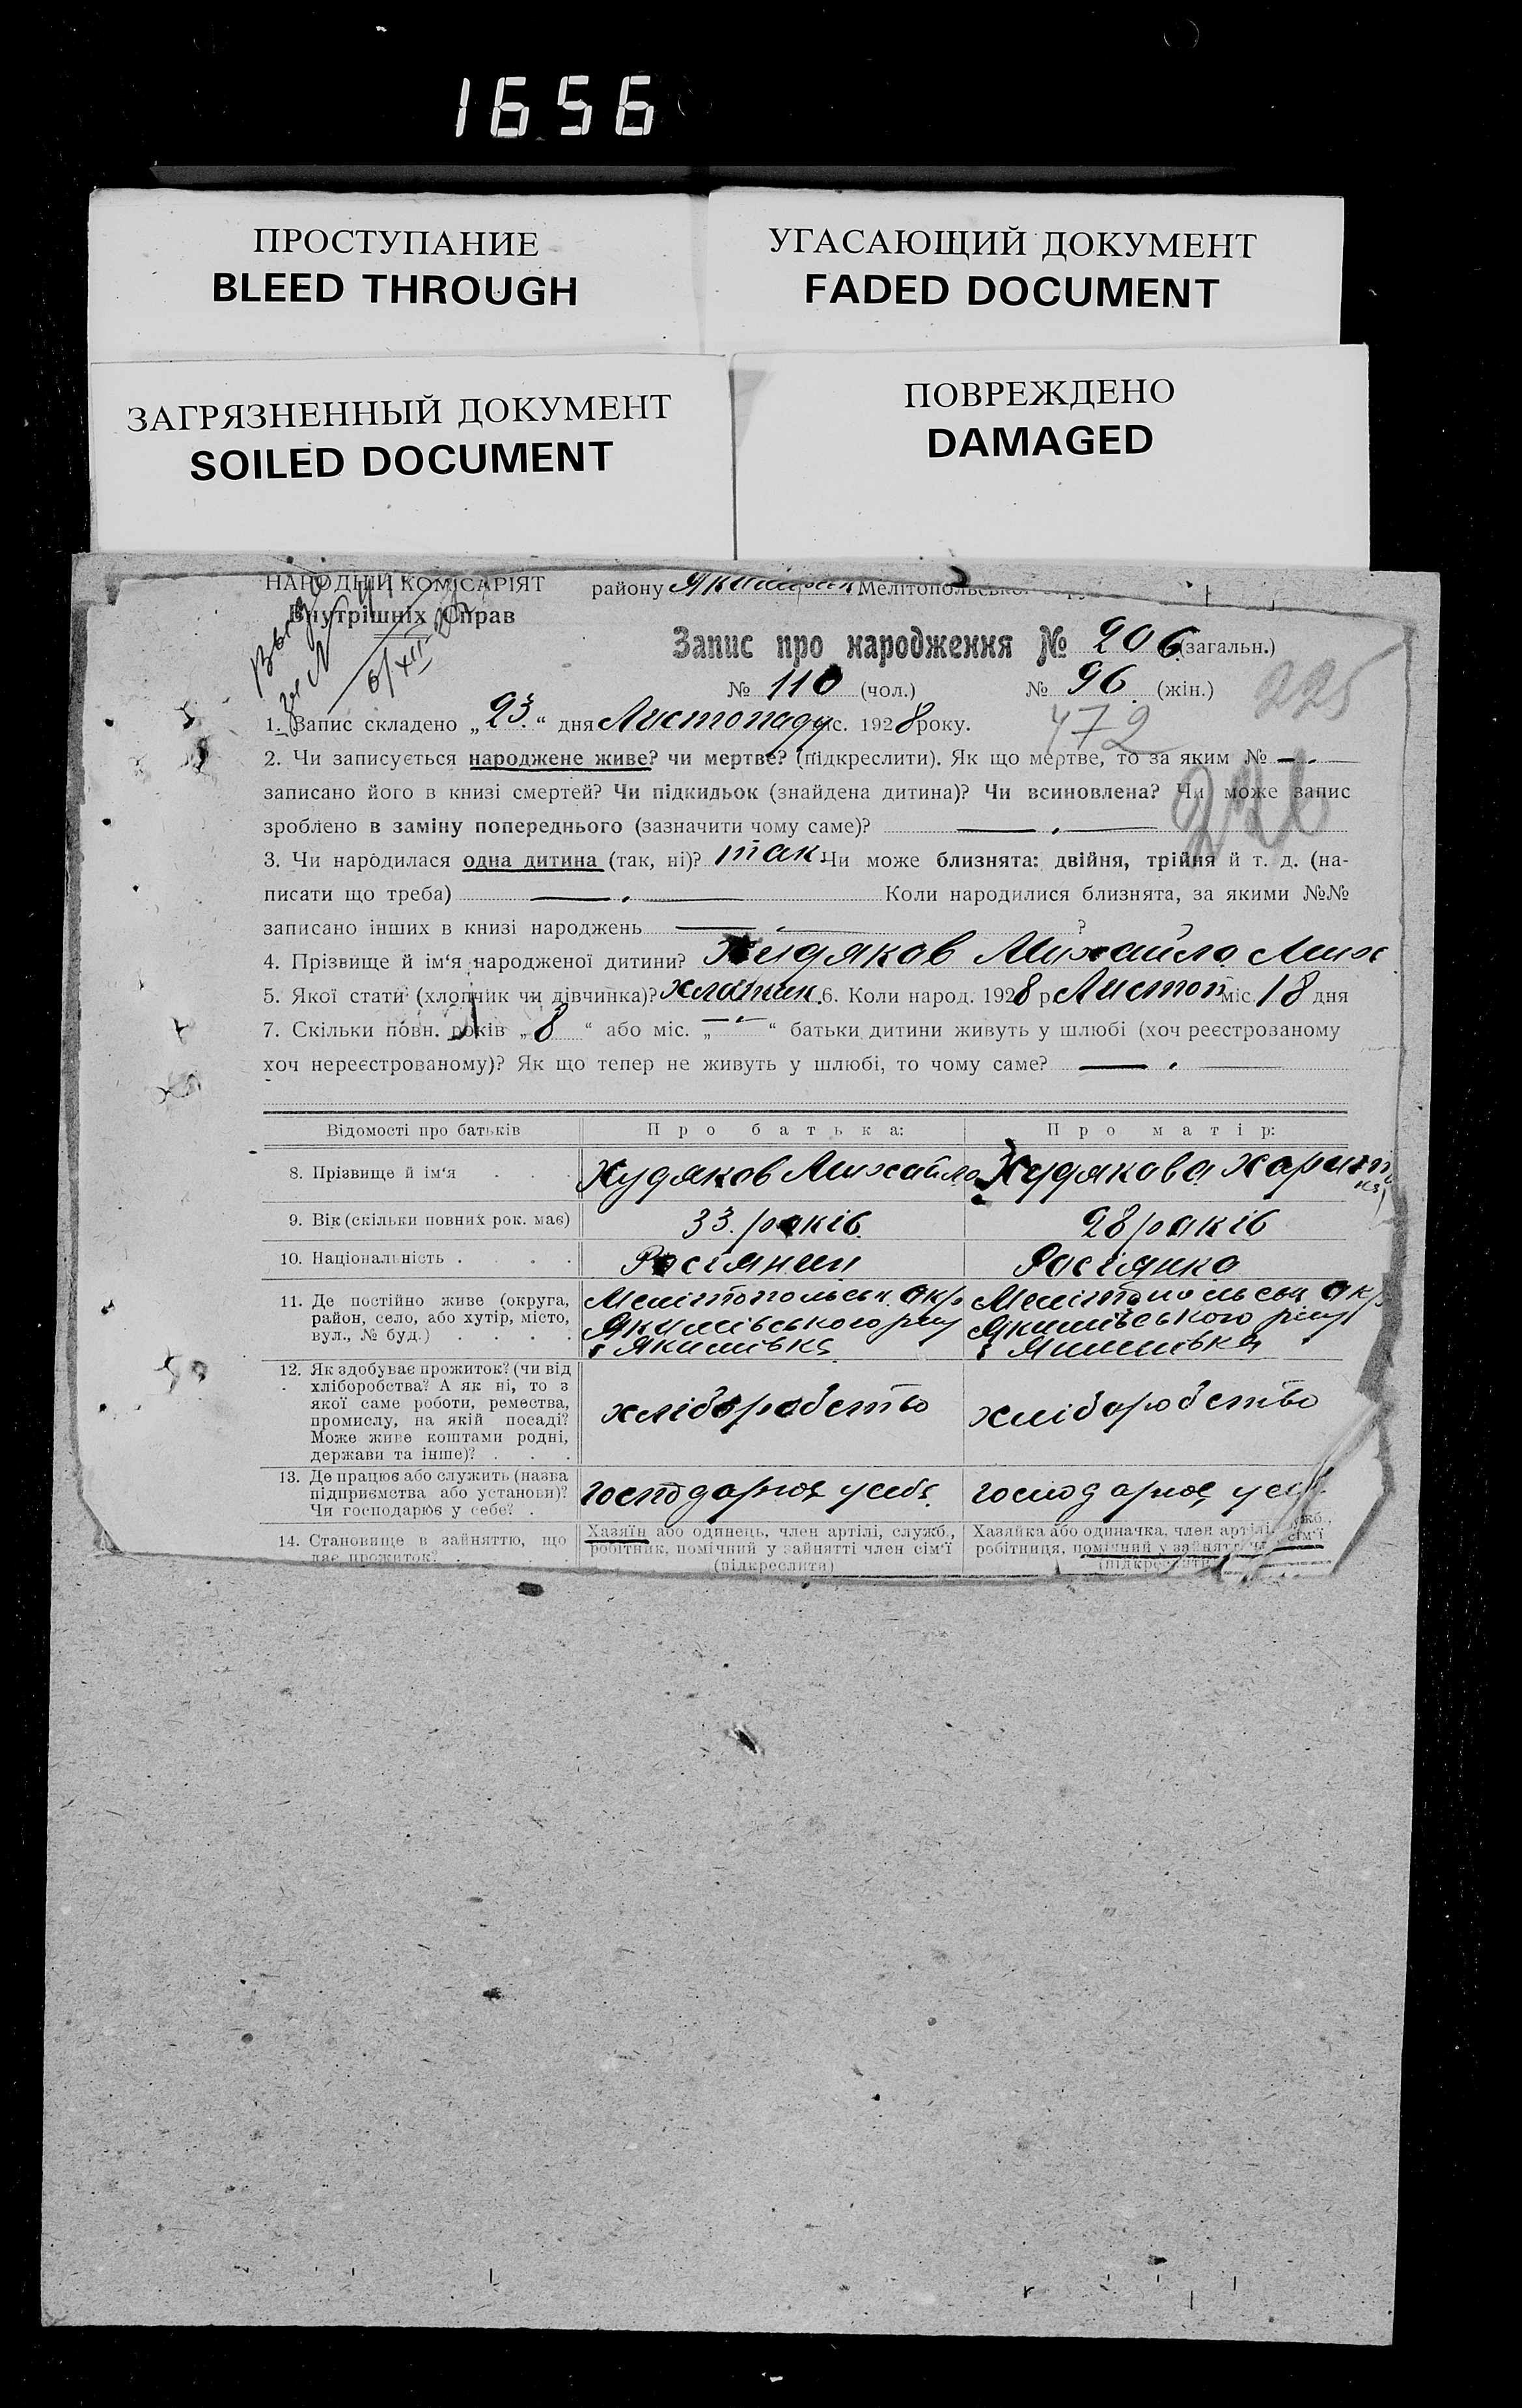 1656
ПРОСТУПАНИЕ
BLEED THROUGH
УГАСАЮЩИЙ ДОКУМЕНТ
FADED DOCUMENT
ЗАГРЯЗНЕННЫЙ ДОКУМЕНТ
SOILED DOCUMENT
ПОВРЕЖДЕНО
DAMAGED
НАРОДНІЙ КОМІСАРІЯТ
Внутрішніх Справ
району Мелітопольської
6/XII
Запис про народження № 206 (загальн.)
№ 110 (чол.) № 96 (жін.)
225
1. Запис складено „23“ дня Листопаду с. 1928 року.
472
2. Чи записується народжене живе? чи мертве? (підкреслити). Як що мертве, то за яким № —
записано його в книзі смертей? Чи підкидьок (знайдена дитина)? Чи всиновлена? Чи може запис
226
зроблено в заміну попереднього (зазначити чому саме)? —
3. Чи народилася одна дитина (так, ні)? так Чи може близнята: двійня, трійня й т. д. (на-
писати що треба) — Коли народилися близнята, за якими №№
записано інших в книзі народжень — ?
4. Прізвище й ім‘я народженої дитини? Худяков Михайло Мих
5. Якої стати (хлопчик чи дівчинка)? хлопчик. 6. Коли народ. 1928 р. Листоп міс. 18 дня
7. Скільки повн. років „8“ або міс. „—“ батьки дитини живуть у шлюбі (хоч реєстрованому
хоч нереєстрованому)? Як що тепер не живуть у шлюбі, то чому саме? —
Відомості про батьків
Про батька:
Про матір:
8. Прізвище й ім‘я
Худяков Михайло
Худякова
9. Вік (скільки повних рок. має)
33. років
28 років
10. Національність
Росіянин
Росіянка
11. Де постійно живе (округа,
район, село, або хутір, місто,
вул., № буд.)
Мелітопольськ. окр
Якимівського р-ну
с Якимівка
Мелітопольськ окр.
Якимівського р-ну
с Якимівка
12. Як здобуває прожиток? (чи від
хліборобства? А як ні, то з
якої саме роботи, ремества,
промислу, на якій посаді?
Може живе коштами родні,
держави та інше)?
хліборобство
хліборобство
13. Де працює або служить (назва
підприємства або установи)?
Чи господарює у себе?
Господарює у себе
господарює у себе
14. Становище в зайняттю, що
дає прожиток?
Хазяїн або одинець, член артілі, служб.,
робітник, помічний у зайнятті член сім‘ї
(підкреслити)
Хазяйка або одиначка, член артілі, служб.,
робітниця, помічний у зайнятті член сім‘ї
(підкреслити)